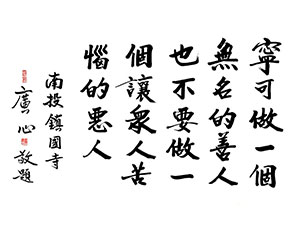 寧可做一個
無名的善人
也不要做一
個讓衆人苦
惱的惡人
南投鎮國寺
廣心敬題